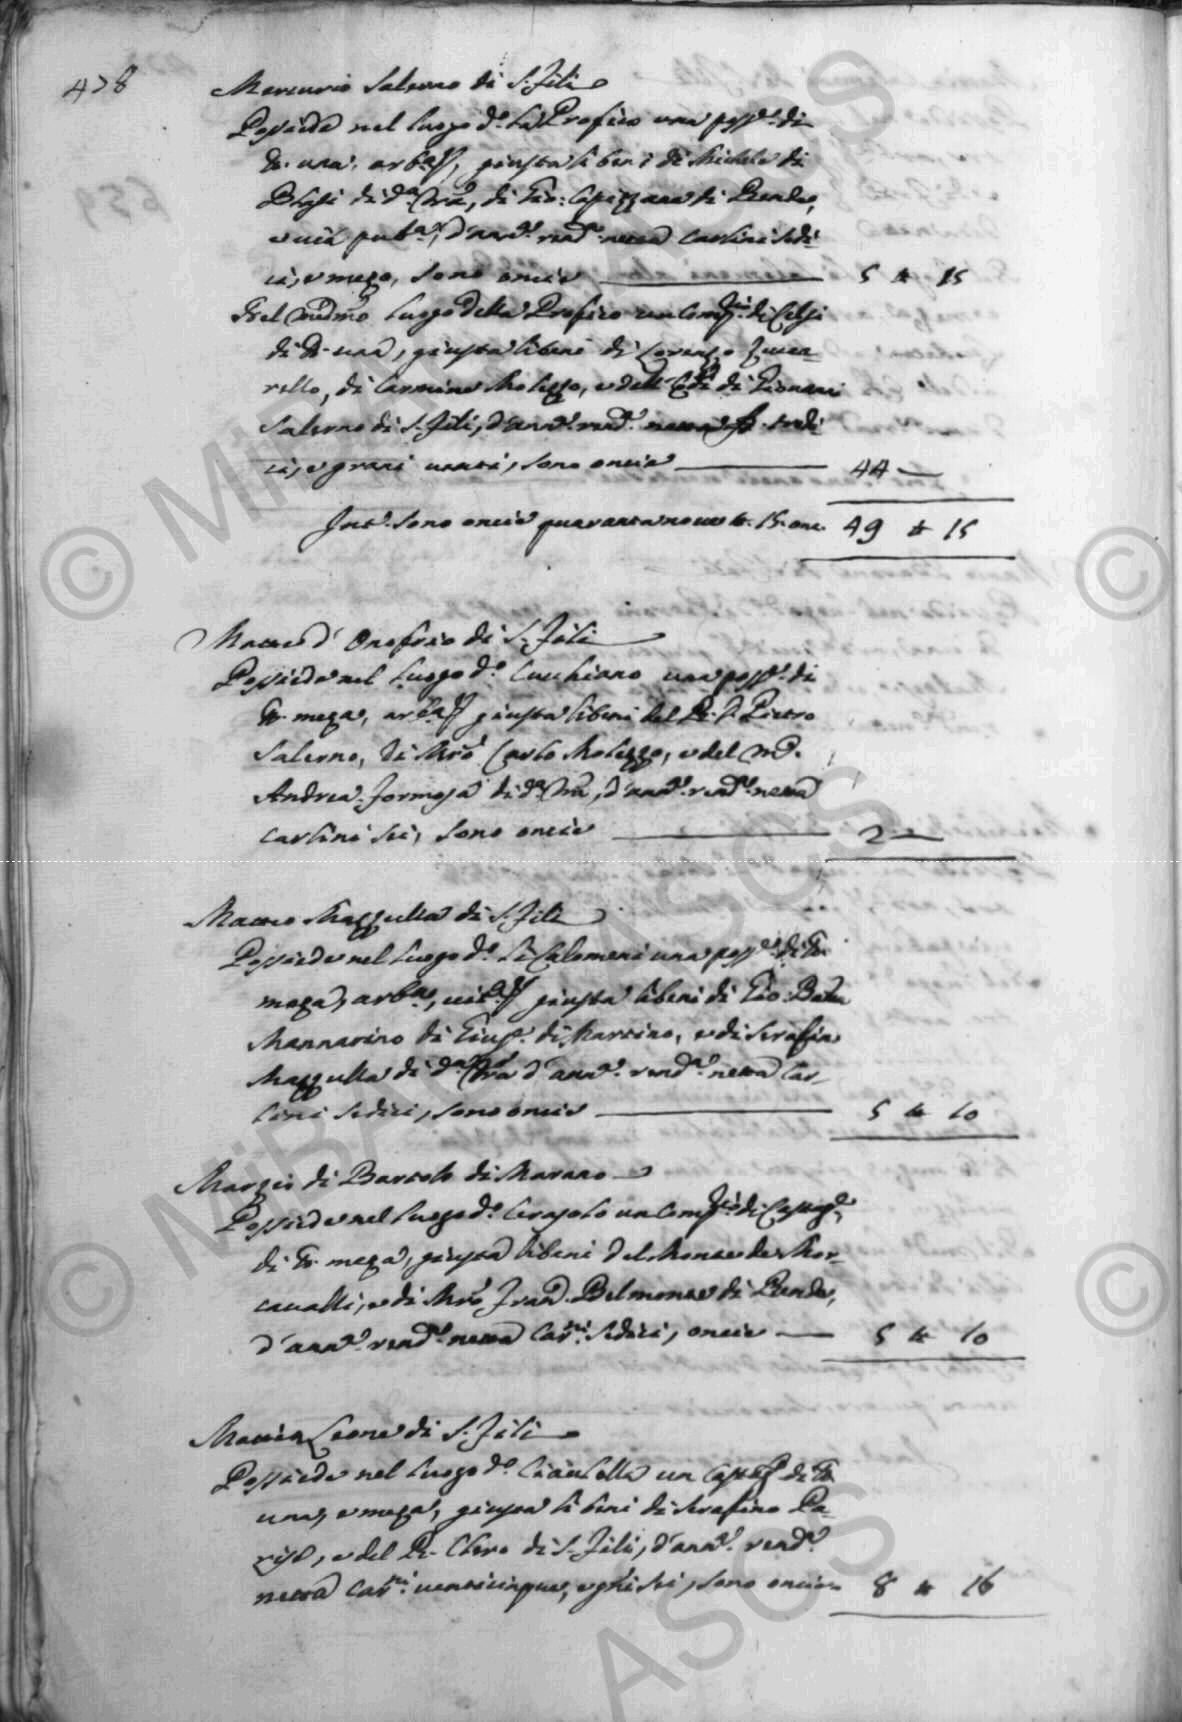 478
Mercurio Salerno di S. Fili
Possiede nel luogo d.º la Profico una poss.e di
tt.ª una, arb.ta, giusta li beni di Michele di
Blasi di d.ª Tra, di Gio: Capizzano di Rende,
e via pub.ca, d'ann.e rend.e netta carlini sedi-
ci, e mezo, sono oncie 5 tt 15
Nel med.mo luogo della Profico un Comp.to di Celsi
di tt.ª una, giusta li beni di Lorenzo Zucca-
rello, di Carmine Molezzo, e dell' di Gennari
Salerno di S. Fili, d'ann.e rend.e netta tredi-
ci, e grani venti, sono oncie 44
Int. sono oncie quarantanove tt. 15 onc. 49 tt 15
Matteo d'Onofrio di S. Fili
Possiede nel luogo d.º Cucchiano una poss.e di
tt.ª meza, arb.ta giusta li beni del R. D. Pietro
Salerno, di Mro Carlo Molezzo, e del m.
Andrea Formosa di d.ª Tra, d'ann.e rend.e netta
carlini sei, sono oncie 2
Matteo Mazzulla di S. Fili
Possiede nel luogo d.º li Calomeni una poss.e di tt.ª
meza, arb.ta, vit.ta giusta li beni di Gio: Batta
Mannarino di Gius.e di Martino, e di Serafin
Mazzulla di d.ª Tra d'ann.e rend.e netta car-
lini sedici, sono oncie 5 tt 10
Marzio di Bartolo di Marano
Possiede nel luogo d.º Cerasolo un Comp.to di Castag.e
di tt.ª meza, giusta li beni del Monte de Mor-
cavalli, e di Mro Fran.º Belmonte di Rende,
d'ann.e rend.e netta Car.ni sedici, oncie 5 tt 10
Mattia Leone di S. Fili
Possiede nel luogo d.º un Cast.to di tt.ª
una, e meza, giusta li beni di Serafino Pa-
rise, e del R. Clero di S. Fili, d'ann.e rend.e
netta Car.ni venticinque, e g.ni sei, sono oncie 8 tt 16
© MiBAC ASCS ©
© MiBAC ASCS ©
ASCS